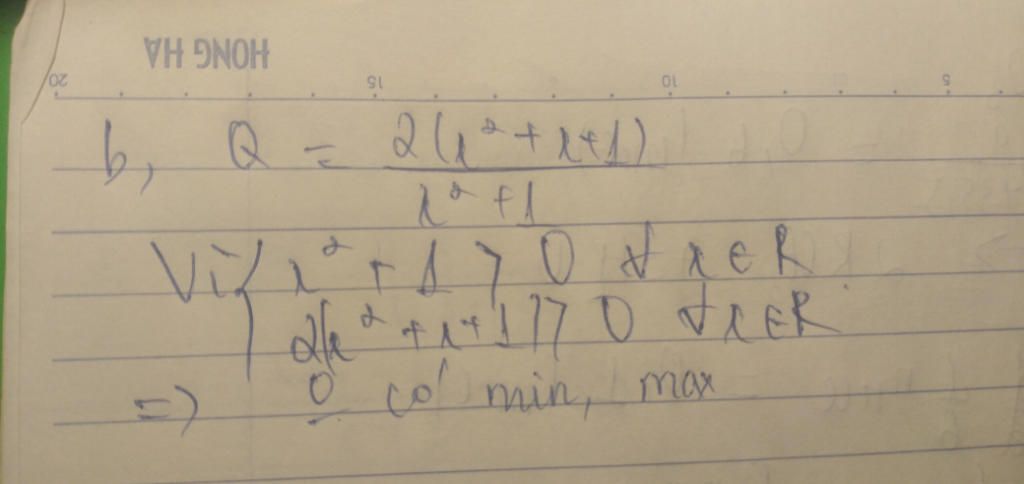 HONG HA
20 15 10 5
b, Q = 2(x² + x + 1) / x² + 1
Vì { x² + 1 > 0 ∀ x ∈ R
2(x² + x + 1) > 0 ∀ x ∈ R
=> Q có min, max